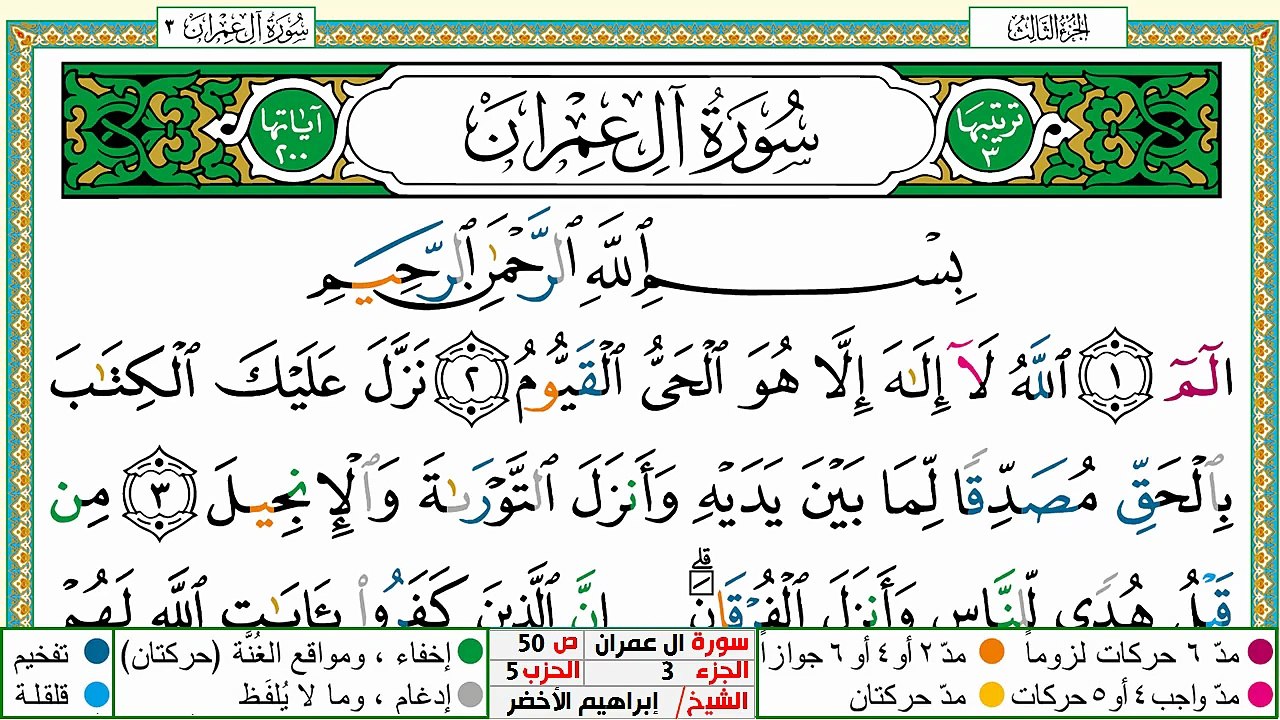 الجزء الثالث
سورة آل عمران ٣
ترتيبها ٣
سُورَةُ آلِ عِمْرَانَ
آياتها ٢٠٠
بِسْمِ ٱللَّهِ ٱلرَّحْمَٰنِ ٱلرَّحِيمِ
الٓمٓ ١ ٱللَّهُ لَآ إِلَٰهَ إِلَّا هُوَ ٱلْحَىُّ ٱلْقَيُّومُ ٢ نَزَّلَ عَلَيْكَ ٱلْكِتَٰبَ
بِٱلْحَقِّ مُصَدِّقًا لِّمَا بَيْنَ يَدَيْهِ وَأَنزَلَ ٱلتَّوْرَىٰةَ وَٱلْإِنجِيلَ ٣ مِن
قَبْلُ هُدًى لِّلنَّاسِ وَأَنزَلَ ٱلْفُرْقَانَ ۗ إِنَّ ٱلَّذِينَ كَفَرُوا۟ بِـَٔايَٰتِ ٱللَّهِ لَهُمْ
مدّ ٦ حركات لزوماً مدّ ٢ أو ٤ أو ٦ جوازاً
مدّ واجب ٤ أو ٥ حركات مدّ حركتان
سورة ال عمران ص 50
الجزء 3 الحزب 5
الشيخ/ إبراهيم الأخضر
إخفاء ، ومواقع الغُنَّة (حركتان) تفخيم
إدغام ، وما لا يُلفَظ قلقلة